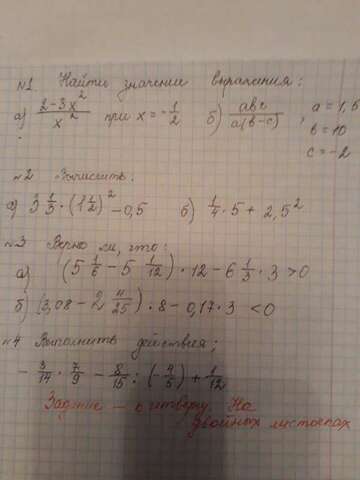 №1 Найти значение выражения:
а) (2-3x²)/x² при x = -1/2 б) abc/a(b-c), a = 1,5
b = 10
c = -2
№2 Вычислить:
а) 3 1/3 · (1 1/2)² - 0,5 б) 1/4 · 5 + 2,5²
№3 Верно ли, что:
а) (5 1/6 - 5 1/12) · 12 - 6 1/3 · 3 > 0
б) (3,08 - 2 4/25) · 8 - 0,17 · 3 < 0
№4 Выполнить действия;
- 3/14 · 7/9 - 8/15 : (-4/5) + 1/12
Задание — к четвергу. На
двойных листочках